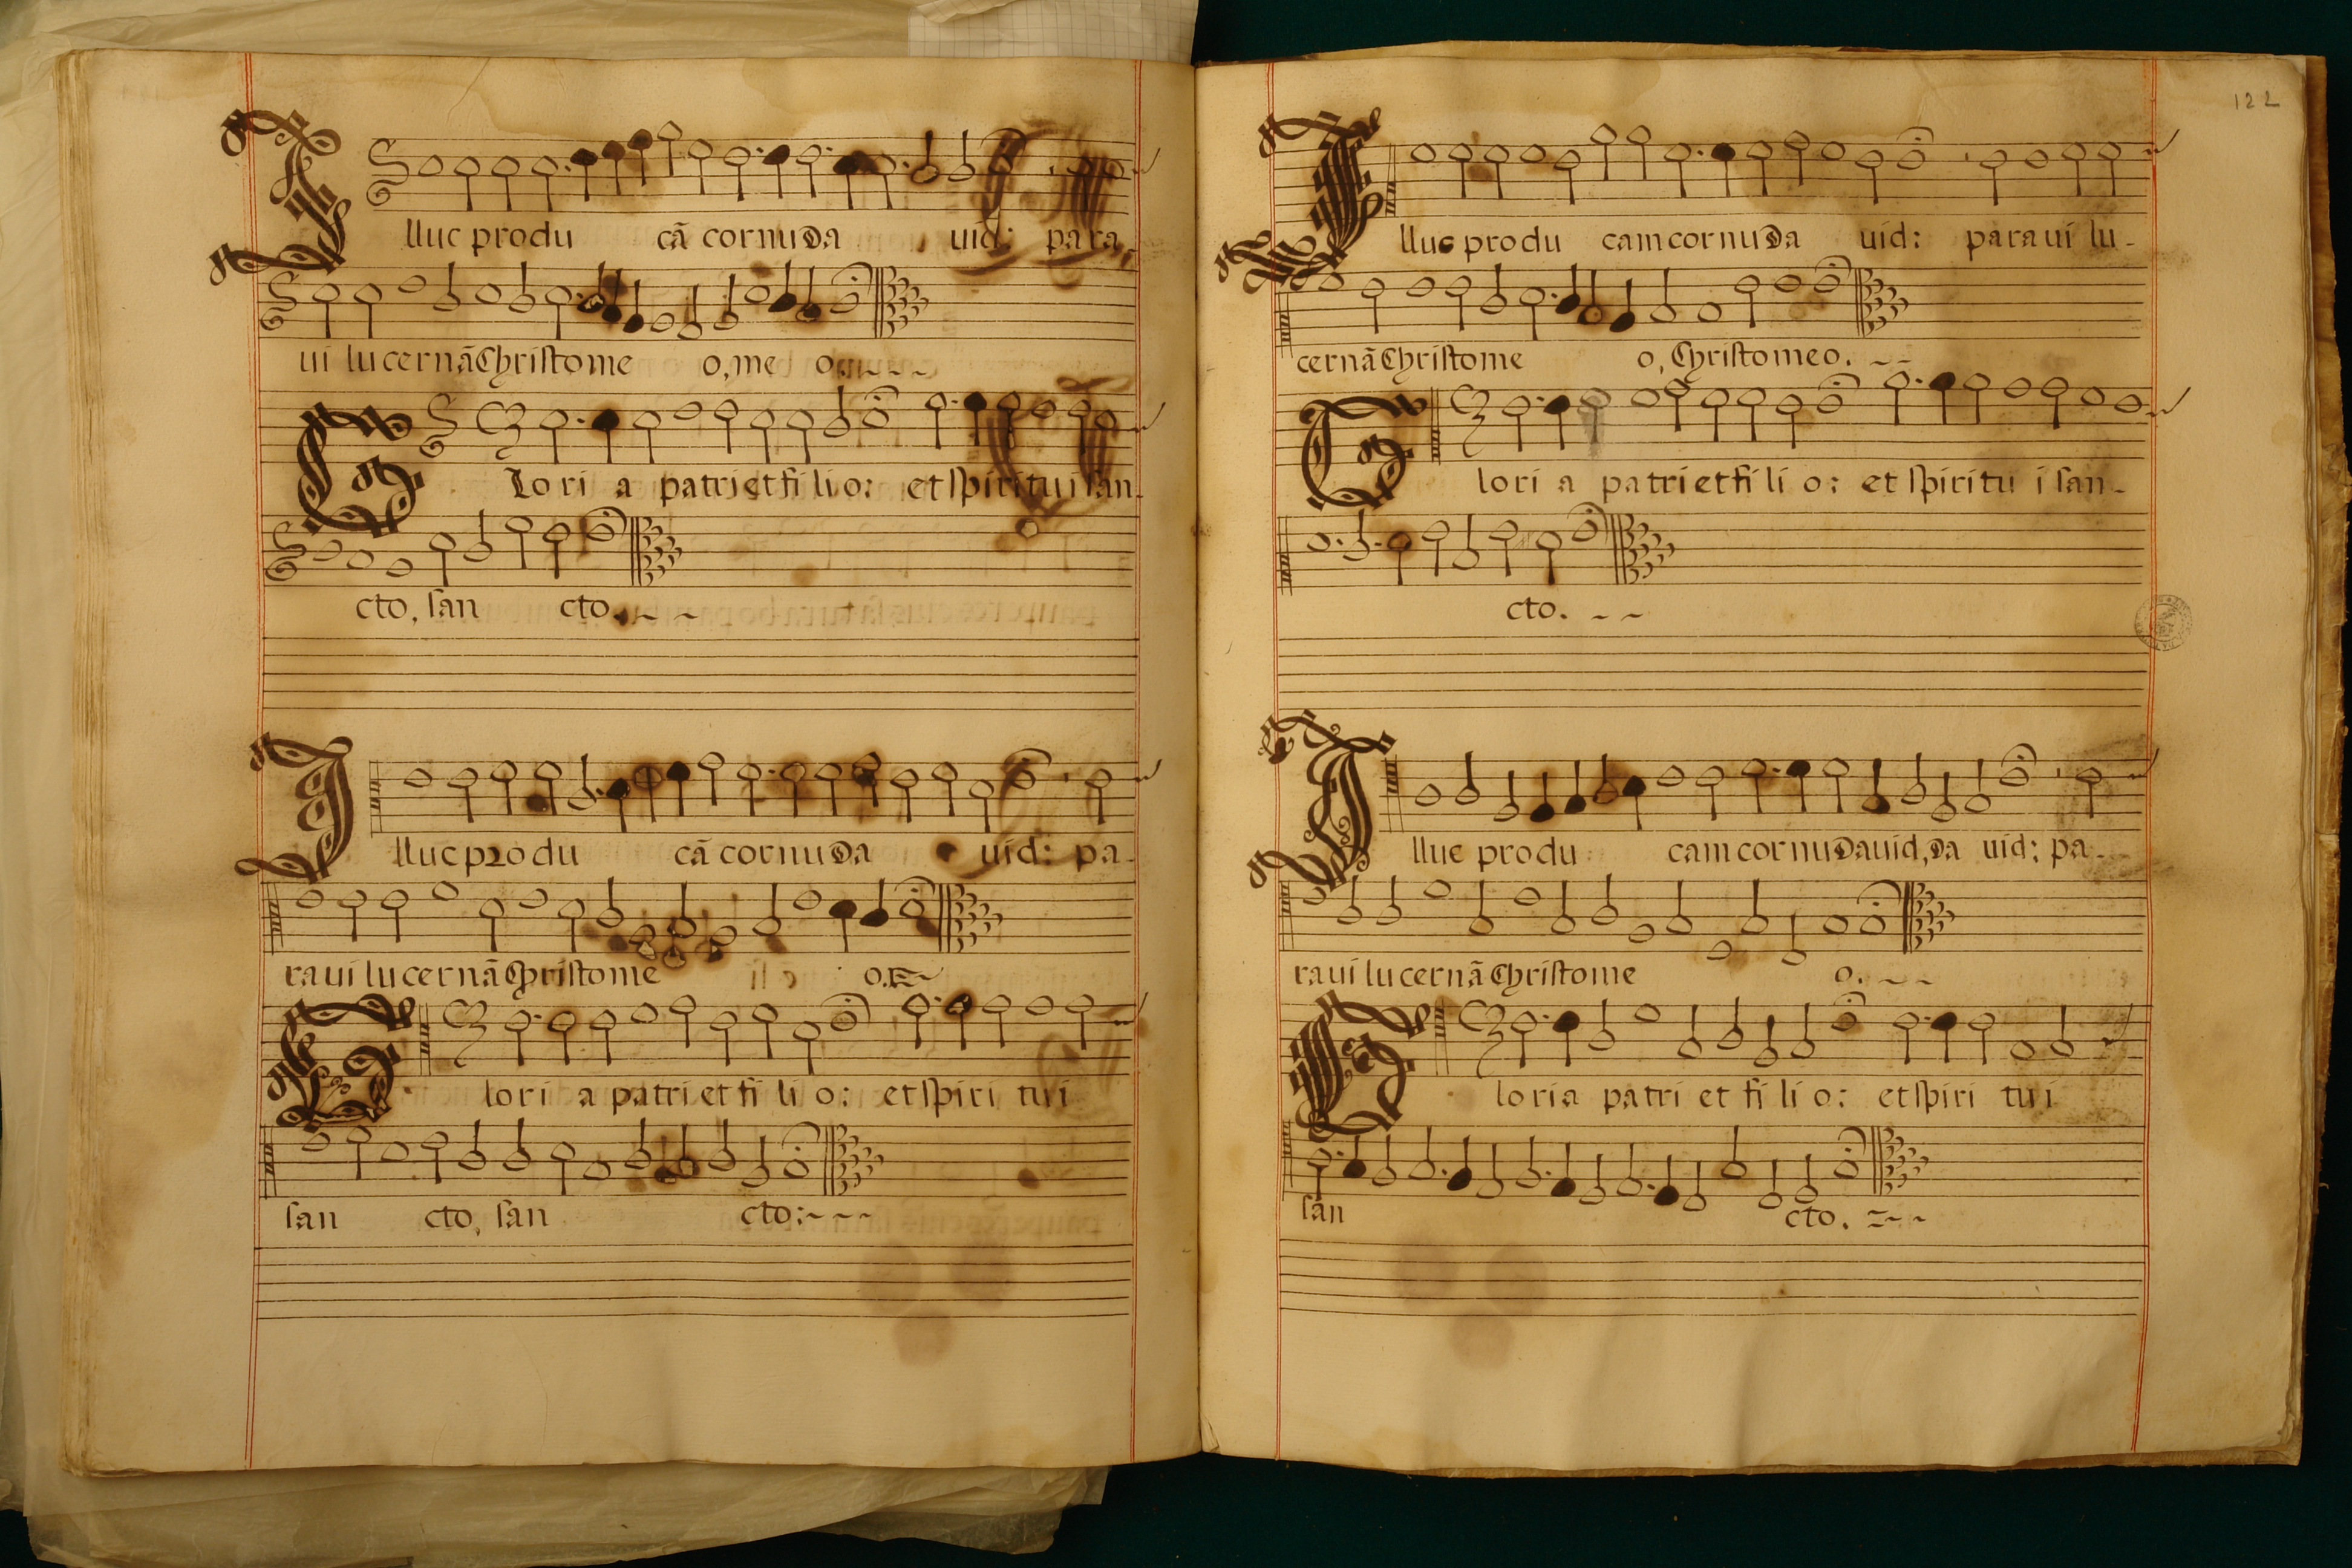 Illuc produ cã cornu da uid: para
ui lucernã Christo me o, me o.
Glori a patri et fi li o: et spiritu i san-
cto, san cto.
Illuc produ cã cornu da uid: pa-
raui lucernã Christo me o.
Glori a patri et fi li o: et spiri tu i
san cto, san cto:
122
Illuc produ cam cornu da uid: paraui lu-
cernã Christo me o, Christo meo.
Glori a patri et fi li o: et spiritu i san-
cto.
Illuc produ cam cornu dauid, da uid: pa-
raui lucernã Christo me o.
Gloria patri et fi li o: et spiri tu i
san cto.